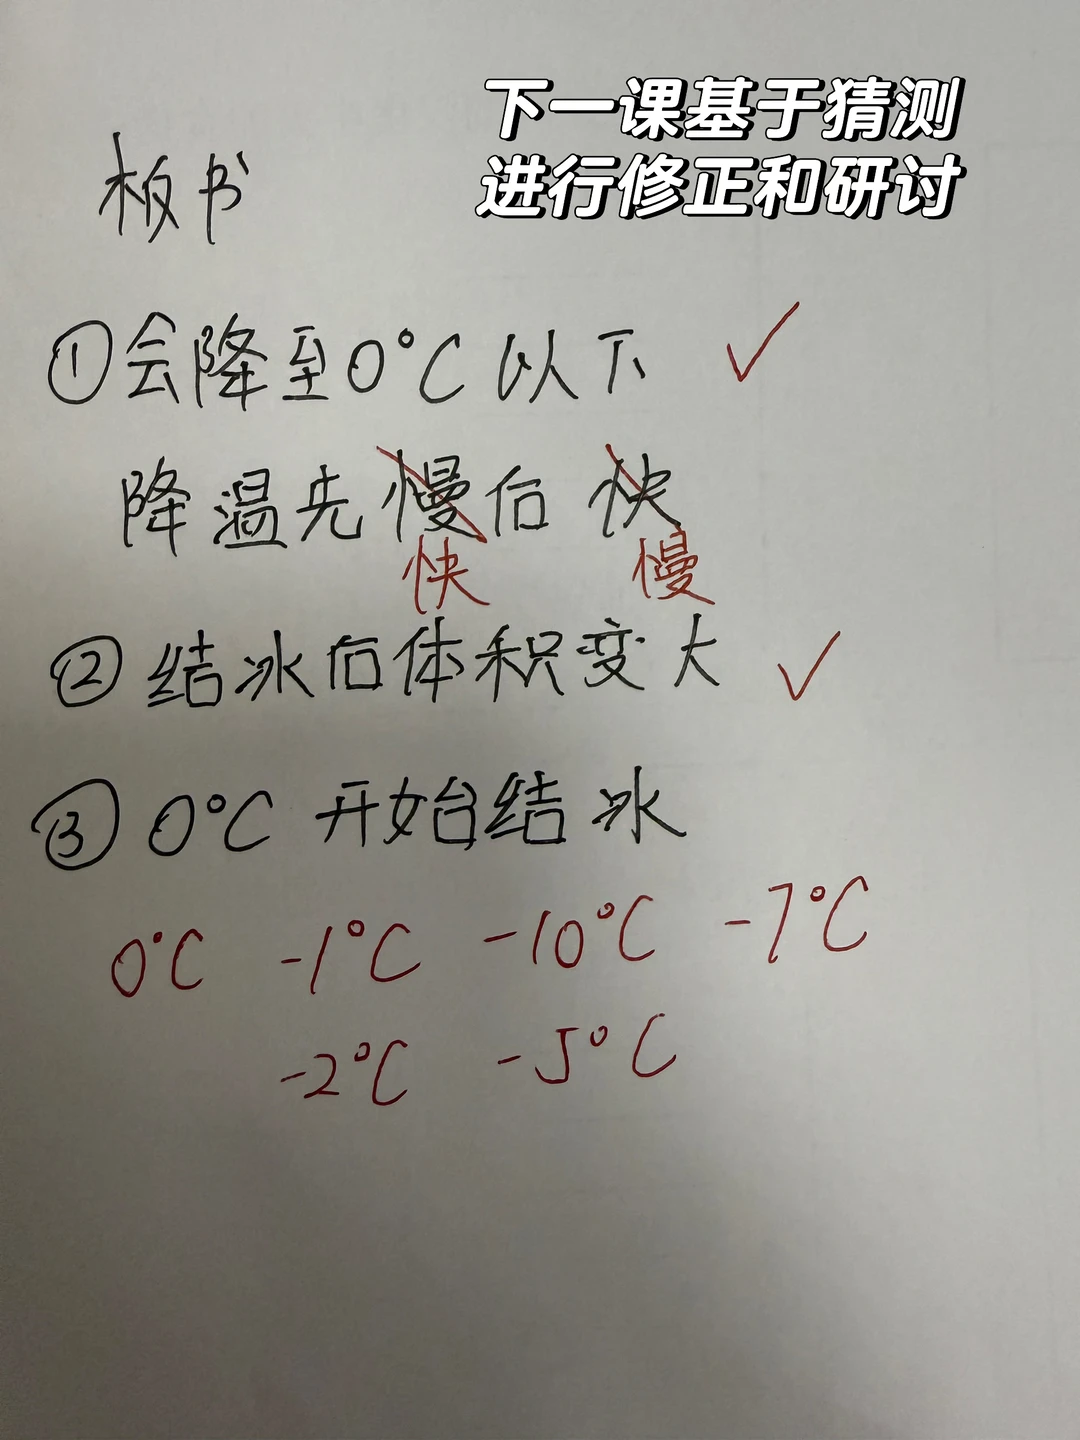 下一课基于猜测
进行修正和研讨
板书
①会降至0°C以下 ✓
降温先慢后快
快 慢
②结冰后体积变大 ✓
③0°C开始结冰
0°C -1°C -10°C -7°C
-2°C -5°C